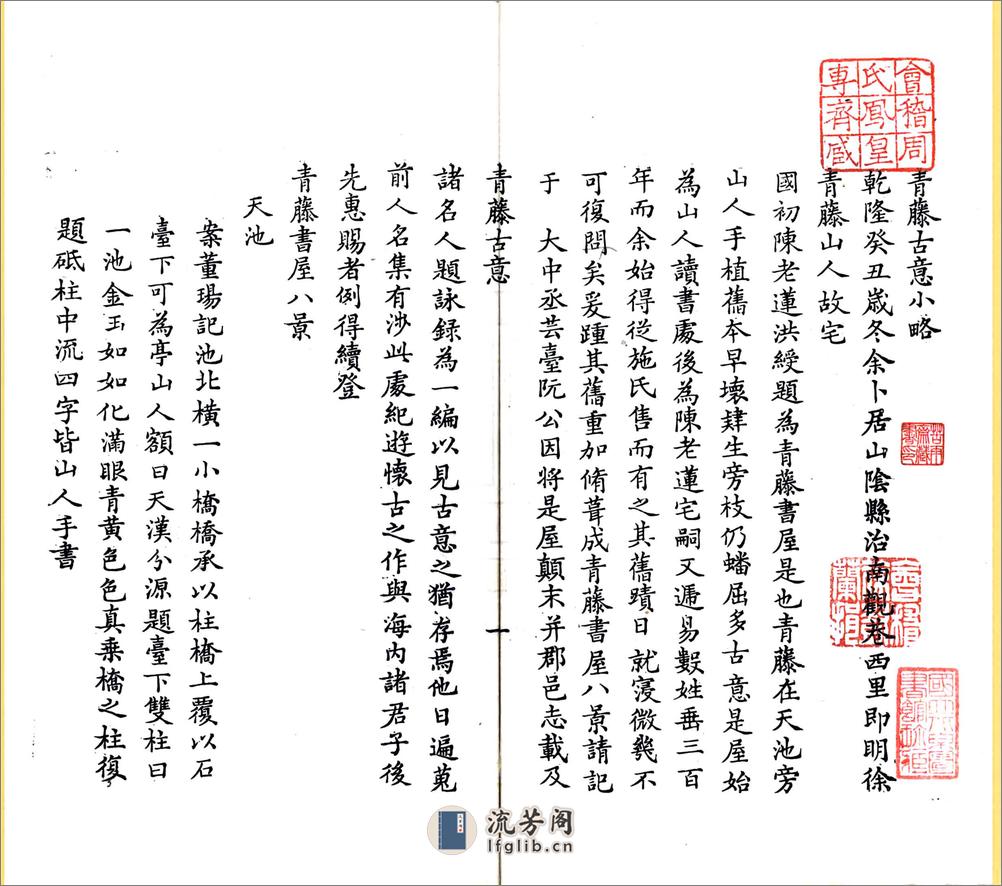 青藤古意小略
乾隆癸丑歲冬余卜居山陰縣治南觀巷西里即明徐
青藤山人故宅
國初陳老蓮洪綬題為青藤書屋是也青藤在天池旁
山人手植舊本早壞肄生旁枝仍蟠屈多古意是屋始
為山人讀書處後為陳老蓮宅嗣又遞易數姓垂三百
年而余始得從施氏售而有之其舊蹟日就寖微幾不
可復問矣爰踵其舊重加脩葺成青藤書屋八景請記
于 大中丞芸臺阮公因將是屋顛末并郡邑志載及
青藤古意
一
諸名人題詠録為一編以見古意之猶存焉他日遍蒐
前人名集有涉此處紀遊懷古之作與海內諸君子後
先惠賜者例得續登
青藤書屋八景
天池
案董瑒記池北橫一小橋橋承以柱橋上覆以石
臺下可為亭山人額曰天漢分源題臺下雙柱曰
一池金玉如如化滿眼青黃色色真乗橋之柱復
題砥柱中流四字皆山人手書
會稽周
氏鳳皇
專齋臧
流芳阁
lfglib.cn